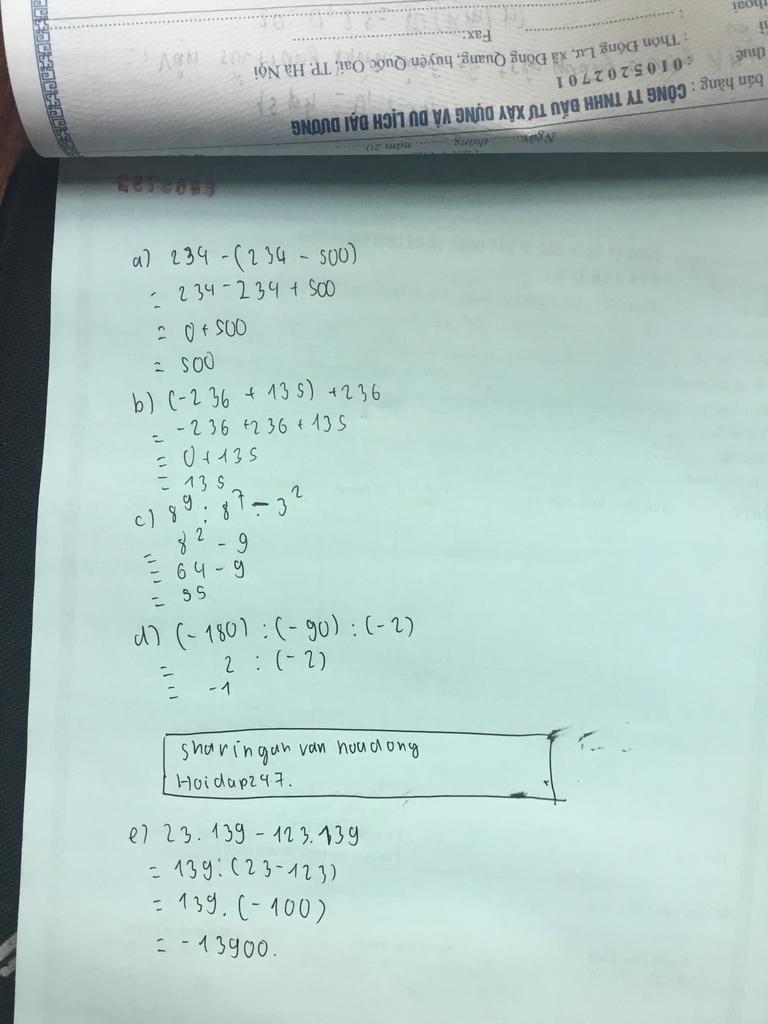 Fax:
: Thôn Đồng Lư, xã Đồng Quang, huyện Quốc Oai, TP Hà Nội
: 0105202701
bán hàng : CÔNG TY TNHH ĐẦU TƯ XÂY DỰNG VÀ DU LỊCH ĐẠI DƯƠNG
Ngày........tháng........năm 20
a) 234 - (234 - 500)
= 234 - 234 + 500
= 0 + 500
= 500
b) (-236 + 135) + 236
= -236 + 236 + 135
= 0 + 135
= 135
c) 8⁹ : 8⁷ - 3²
= 8² - 9
= 64 - 9
= 55
d) (-180) : (-90) : (-2)
= 2 : (-2)
= -1
sharingan van hoadong
Hoidap247.
e) 23.139 - 123.139
= 139:(23-123)
= 139.(-100)
= -13900.